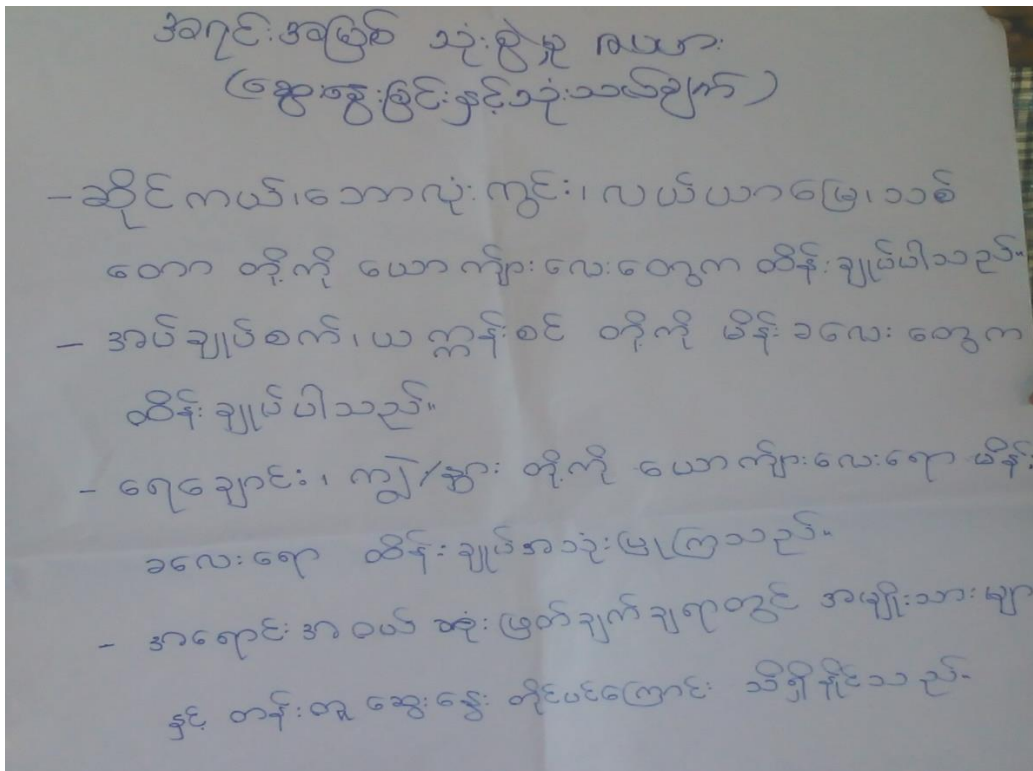 အရင်းအမြစ် သုံးစွဲမှု ဇယား
(ဆွေးနွေးခြင်းနှင့်သုံးသပ်ချက်)
- ဆိုင်ကယ်၊ ဘောလုံးကွင်း၊ လယ်ယာမြေ၊ သစ်
တော တို့ကို ယောကျ်ားလေးတွေက ထိန်းချုပ်ပါသည်။
- အပ်ချုပ်စက်၊ ယက္ကန်းစင် တို့ကို မိန်းခလေးတွေက
ထိန်းချုပ်ပါသည်။
- ရေချောင်း၊ ကျွဲ/နွား တို့ကို ယောကျ်ားလေးရော မိန်း
ခလေးရော ထိန်းချုပ်အသုံးပြုကြသည်။
- အရောင်းအဝယ် ဆုံးဖြတ်ချက်ချရာတွင် အမျိုးသားမျာ
နှင့် တန်းတူ ဆွေးနွေး တိုင်ပင်ကြောင်း သိရှိနိုင်သည်။